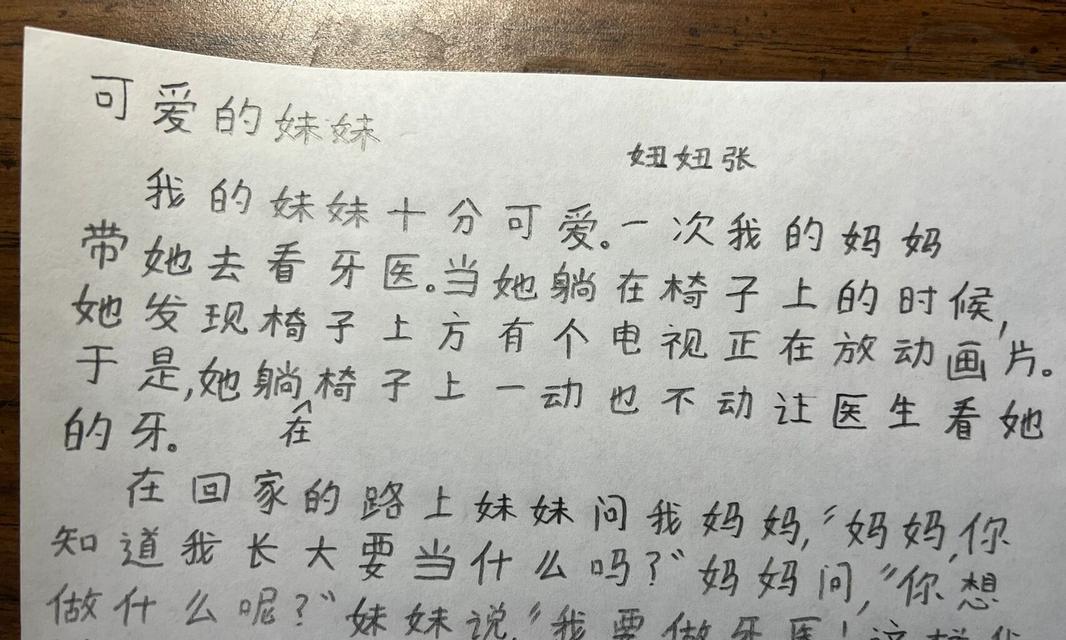 可爱的妹妹
妞妞张
我的妹妹十分可爱。一次我的妈妈
带她去看牙医。当她躺在椅子上的时候,
她发现椅子上方有个电视正在放动画片。
于是,她躺在椅子上一动也不动让医生看她
的牙。
在回家的路上妹妹问我妈妈,“妈妈,你
知道我长大要当什么吗?”妈妈问,“你想
做什么呢?”妹妹说,“我要做牙医!这样我